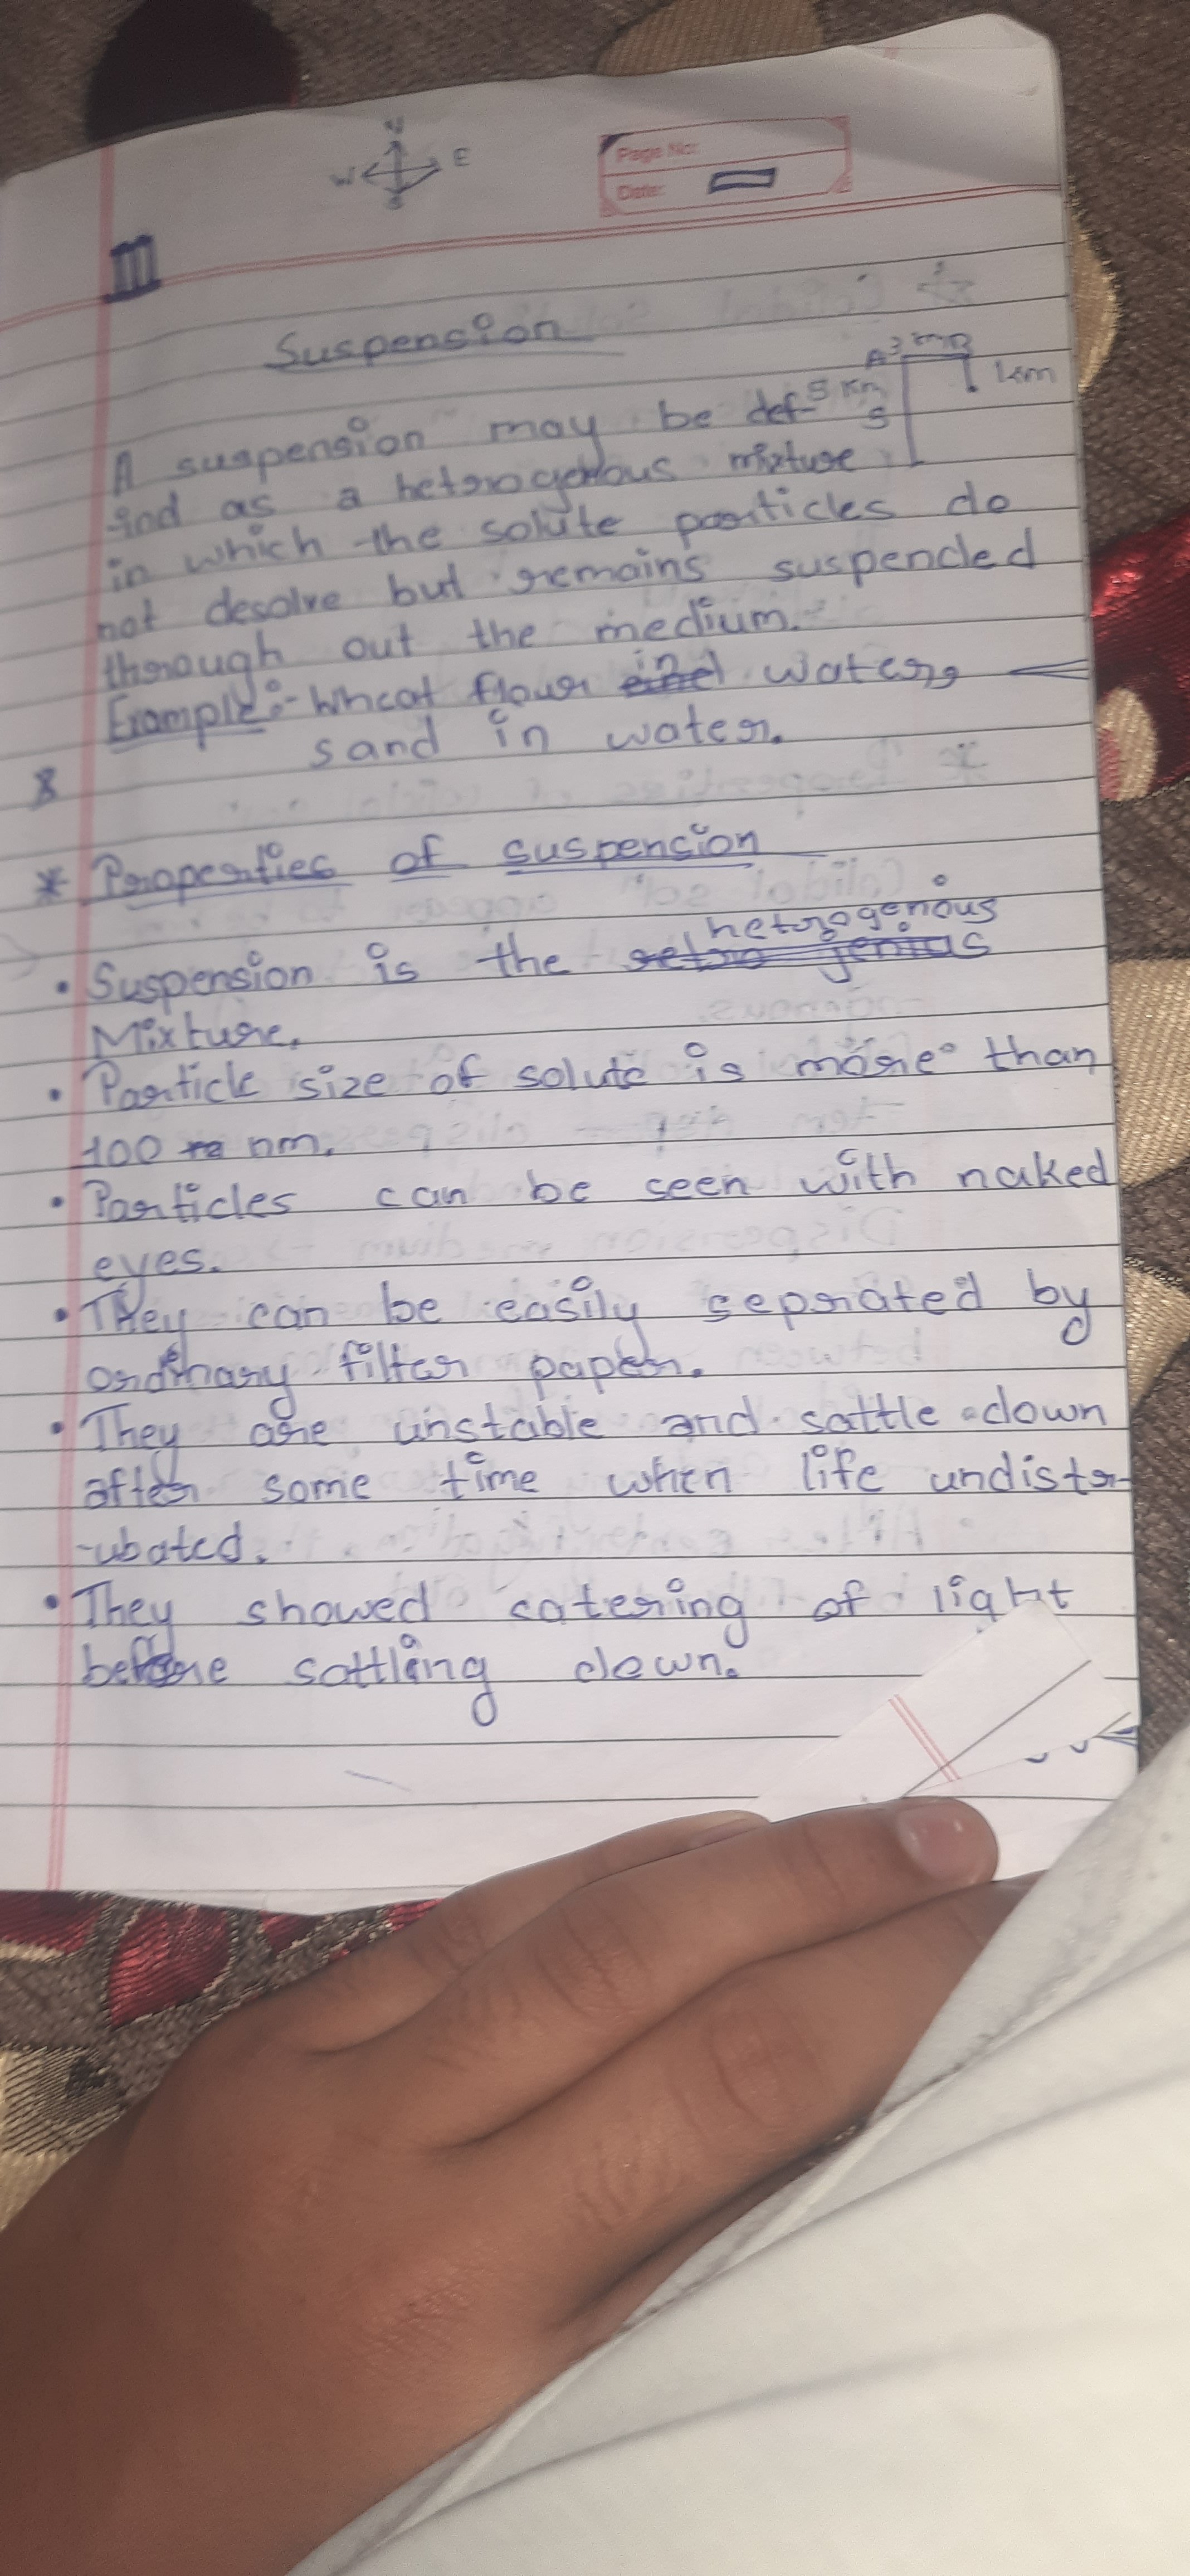 N
W E
S
Page No:
Date:
III
Suspension
3 km
1km
5 km
A suspension may be def-
-ind as a hetrogenous mixture
in which the solute particles do
not desolve but remains suspended
thorough out the medium.
Example:- Wheat flour in water,
sand in water.
* Properties of suspension
• Suspension is the hetrogenious
Mixture.
• Particle size of solute is more than
100 nm.
• Particles can be seen with naked
eyes.
• They can be easily seprated by
ordinary filter paper.
• They are unstable and sattle down
after some time when life undistr-
-ubated.
• They showed catering of light
before sattling down.